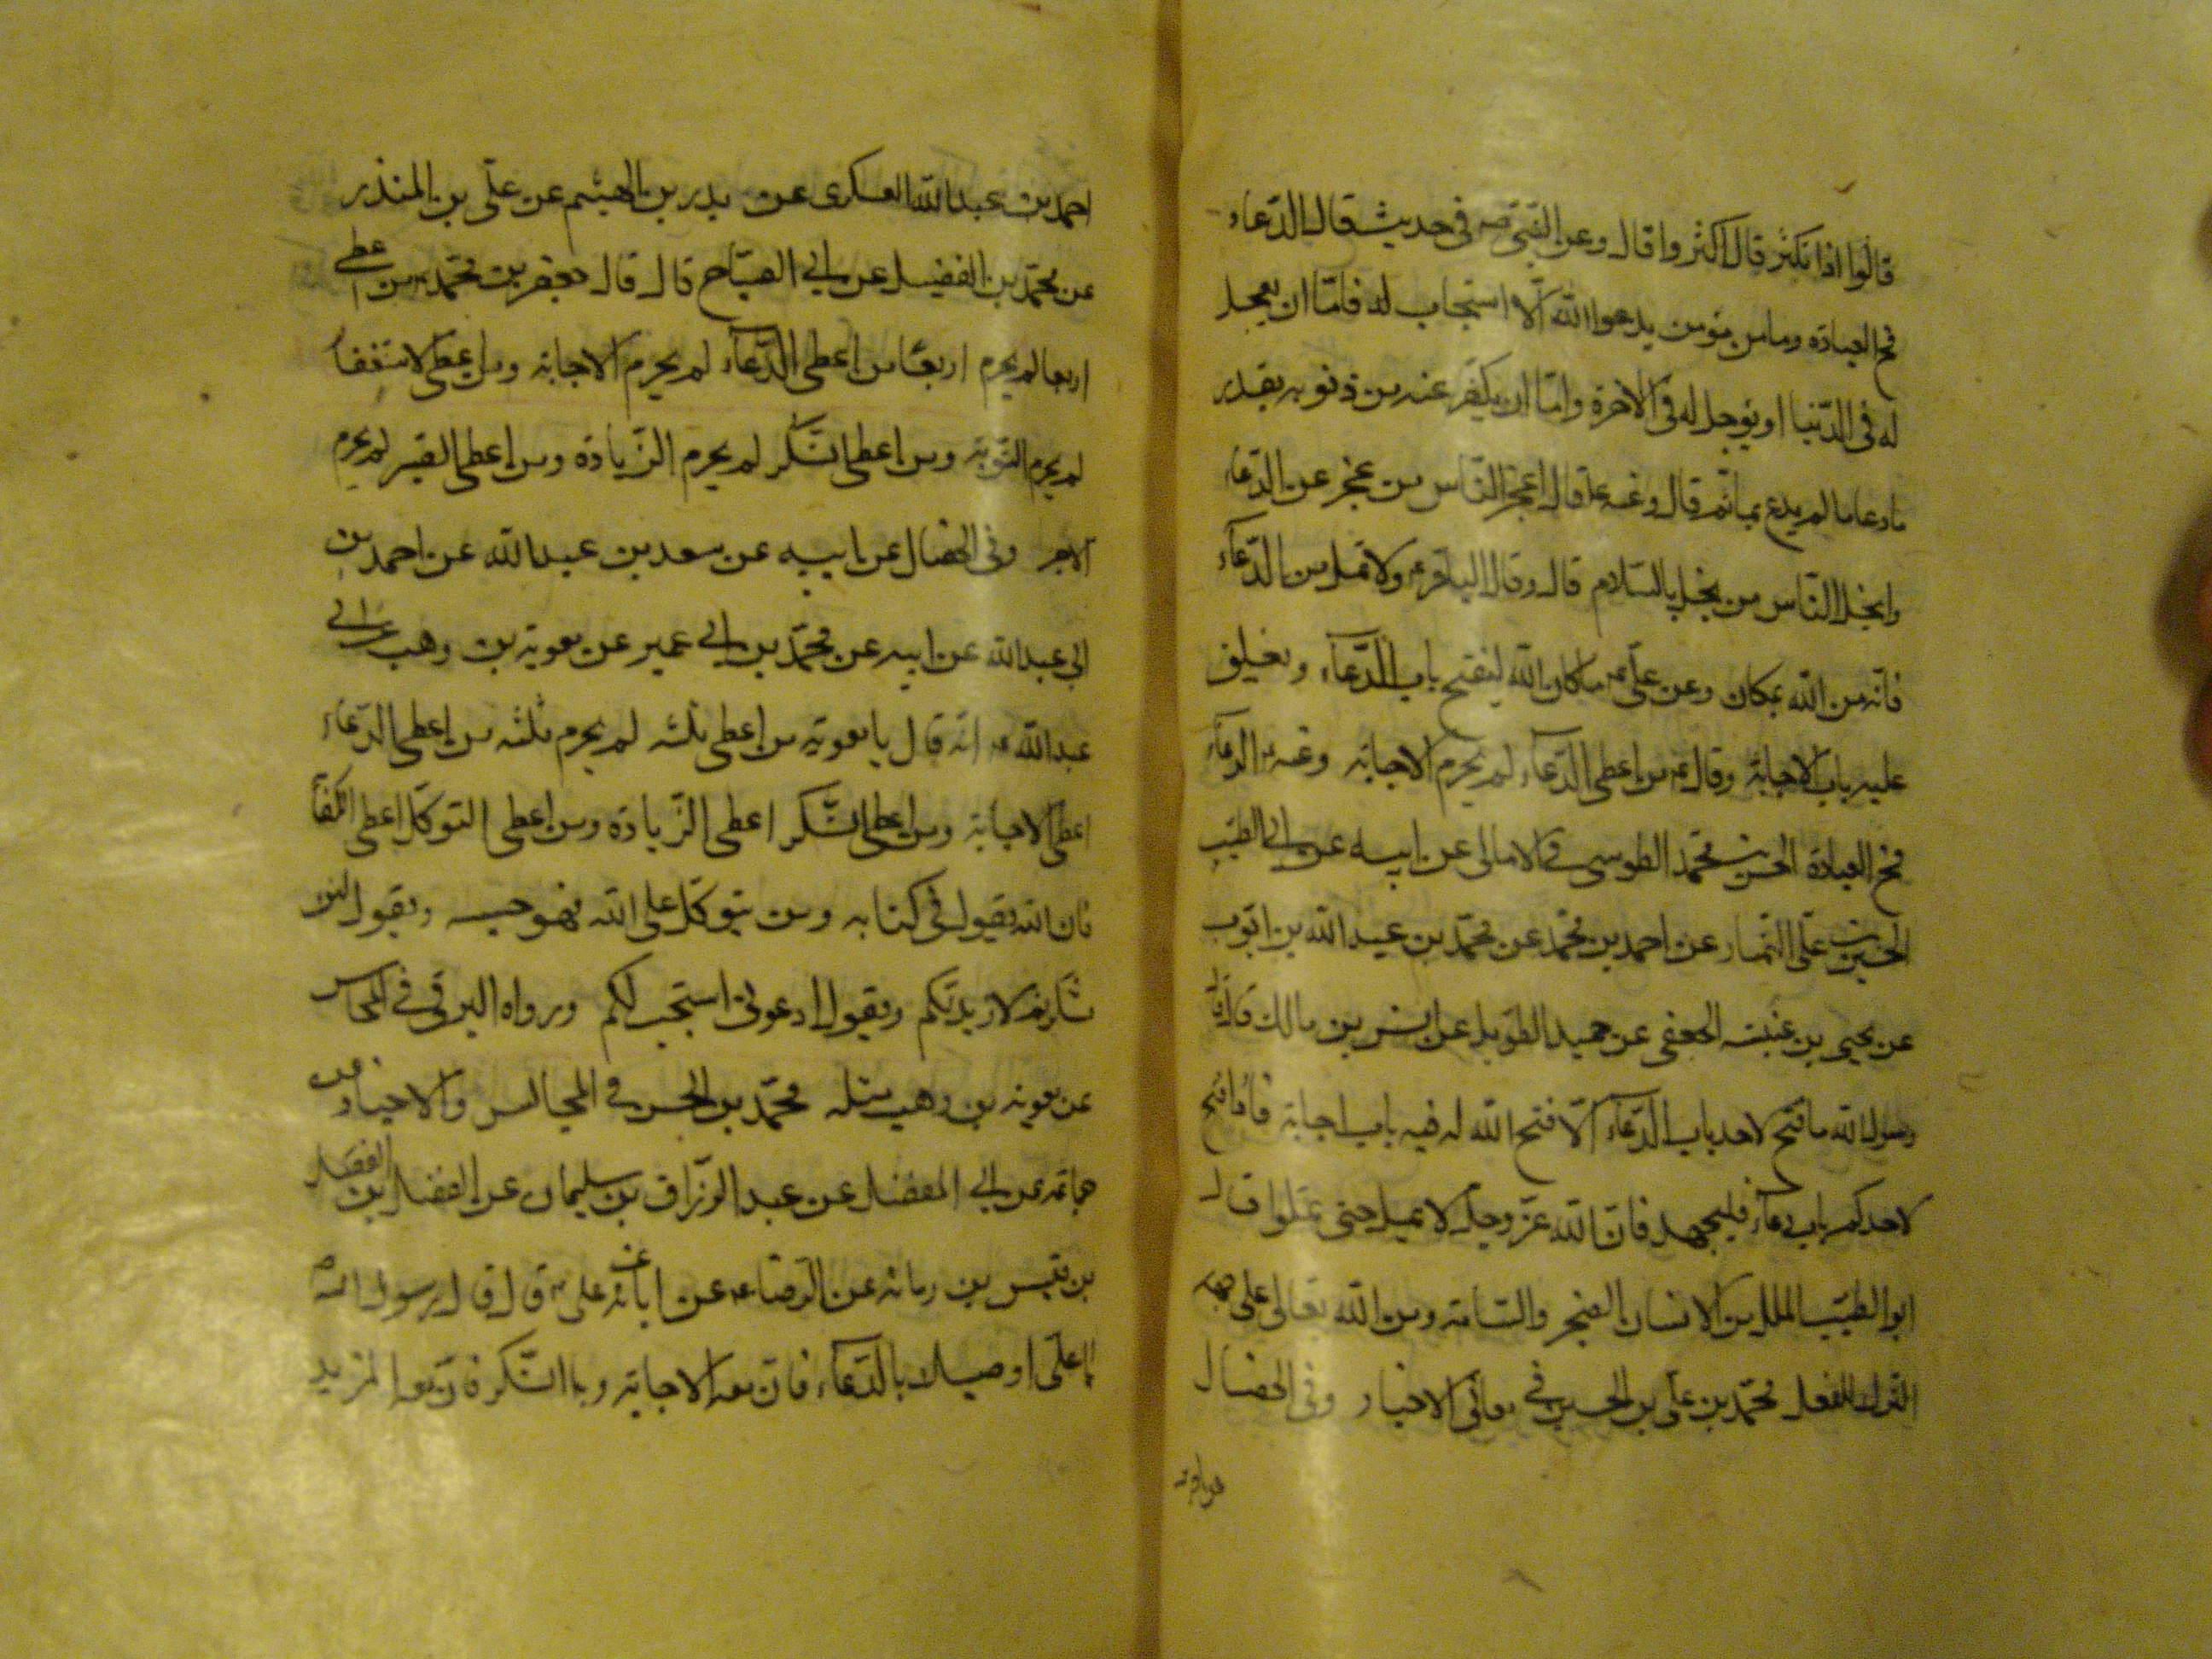 قالوا اذا نكثر قال اكثروا قال وعن النبي صه في حديث قال الدّعاء
مخ العبادة وما من مؤمن يدعوا الله الّا استجاب له فامّا ان يعجل
له في الدّنيا او يؤجل له في الآخرة وامّا ان يكفّر عنه من ذنوبه بقدر
ما دعا ما لم يدع بماثم قال وعنه ع قال اعجز النّاس من عجز عن الدّعاء
وابخل النّاس من بخل بالسّلام قال وقال الباقر ع ولا تمل من الدّعاء
فانّه من الله بمكان وعن علّي ع ما كان الله ليفتح باب الدّعاء ويغلق
عليه باب الاجابة وقال ع من اعطى الدّعاء لم يحرم الاجابة وعنه ع الدعاء
مخ العبادة الحسن بن محمّد الطوسي في الامالي عن ابيه عن ابي الطيّب
الحسين بن علي التمار عن احمد بن محمّد عن محمّد بن عبد الله بن ايّوب
عن يحيى بن عنبسة الجعفي عن حميد الطّويل عن انس بن مالك قال قال
رسول الله ما فتح لاحد باب الدّعاء الّا فتح الله له فيه باب اجابة فاذا فتح
لاحدكم باب دعاء فليجهد فانّ الله عزّ وجلّ لا يمل حتى تملوا قال
ابو الطيّب الملل من الانسان الضجر والسّامة ومن الله تعالى على جهة
الترك للفعل محمّد بن علّي بن الحسين في معاني الاخبار وفي الخصال
احمد بن عبد الله العسكري عن بدر بن الهيثم عن علّي بن المنذر
عن محمّد بن الفضيل عن ابي الصبّاح قال قال جعفر بن محمّد ع من اعطى
اربعا لم يحرم اربعًا من اعطى الدّعاء لم يحرم الاجابة ومن اعطى الاستغفار
لم يحرم التوبة ومن اعطى الشّكر لم يحرم الزّيادة ومن اعطى الصبر لم يحرم
الاجر وفي الخصال عن ابيه عن سعد بن عبد الله عن احمد بن
ابي عبد الله عن ابيه عن محمّد بن ابي عمير عن معوية بن وهب عن ابي
عبد الله ع انّه قال يا معوية من اعطى ثلثه لم يحرم ثلثه من اعطى الدّعاء
اعطى الاجابة ومن اعطى الشّكر اعطى الزّيادة ومن اعطى التوكّل اعطى الكفاية
فان الله يقول في كتابه ومن يتوكّل على الله فهو حسبه ويقول لئن
شكرتم لازيدنّكم ويقول ادعوني استجب لكم ورواه البرقي في المحاسن
عن معوية بن وهب مثله محمّد بن الحسن في المجالس والاخبار عن
جماعة عن ابي المفضل عن عبد الرّزاق بن سليمان عن الفضل بن الفضل
بن قيس بن رمانه عن الرّضا ع عن ابائه عن علي ع قال قال رسول الله
يا علّي اوصيك بالدّعاء فانّ معه الاجابة وبالشّكر فانّ معه المزيد